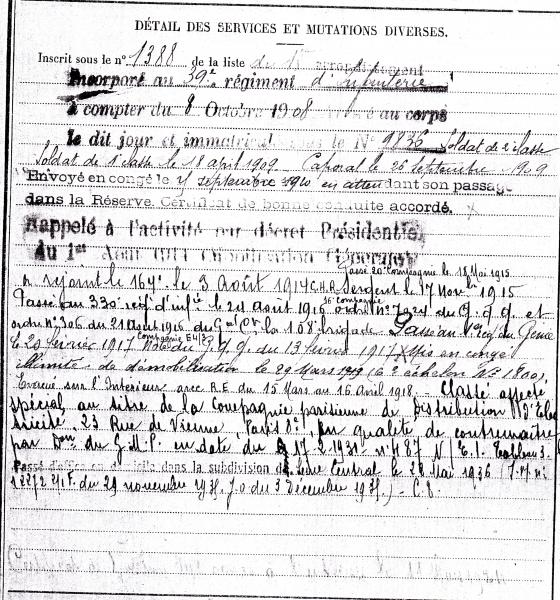 DÉTAIL DES SERVICES ET MUTATIONS DIVERSES.
Inscrit sous le n° 1388 de la liste du arrondissement
Incorporé au 39e régiment d'Infanterie
à compter du 8 Octobre 1908 Arrivé au corps
le dit jour et immatriculé sous le N° 9836 Soldat de 2e classe
Soldat de 1e classe le 18 avril 1909 Caporal le 26 septembre 1909
Envoyé en congé le septembre 1910 en attendant son passage
dans la Réserve. Certificat de bonne conduite accordé.
Rappelé à l'activité par décret Présidentiel
du 1er Août 1914 (Mobilisation Générale)
Passé 20e Compagnie le 18 Mai 1915
a rejoint le 164e le 3 Août 1914 C.H.R. Sergent le 17 Nov 1915
Passé au 330e rég d'inf ie le 24 août 1916 16e compagnie ordre N° 7424 du G.Q.G. et
ordre N° 306 du 21 août 1916 du Gal Ct la 108e brigade. Passé au 1er rég du Génie
le 20 février 1917 Compagnie du G.Q.G. du 13 février 1917 Mis en congé
illimité de démobilisation le 29 Mars 1919 (6e échelon N° 1800)
Évacué sur l'Intérieur avec R.E. du 15 Mars au 16 Avril 1918. Classé affecté
spécial au titre de la Compagnie parisienne de Distribution d'Élec
tricité, 23 Rue de Vienne, Paris 8e, en qualité de contremaître
par Don du G.M.P. en date du 17.2.1931 n° 487 N/E.1. Tableau 3.
Passé d'office dans la subdivision de Seine Central le 28 Mai 1936 (I.M. n°
12272 1/1F. du 29 novembre 1935 J.O du 3 Décembre 1935) - C.8.